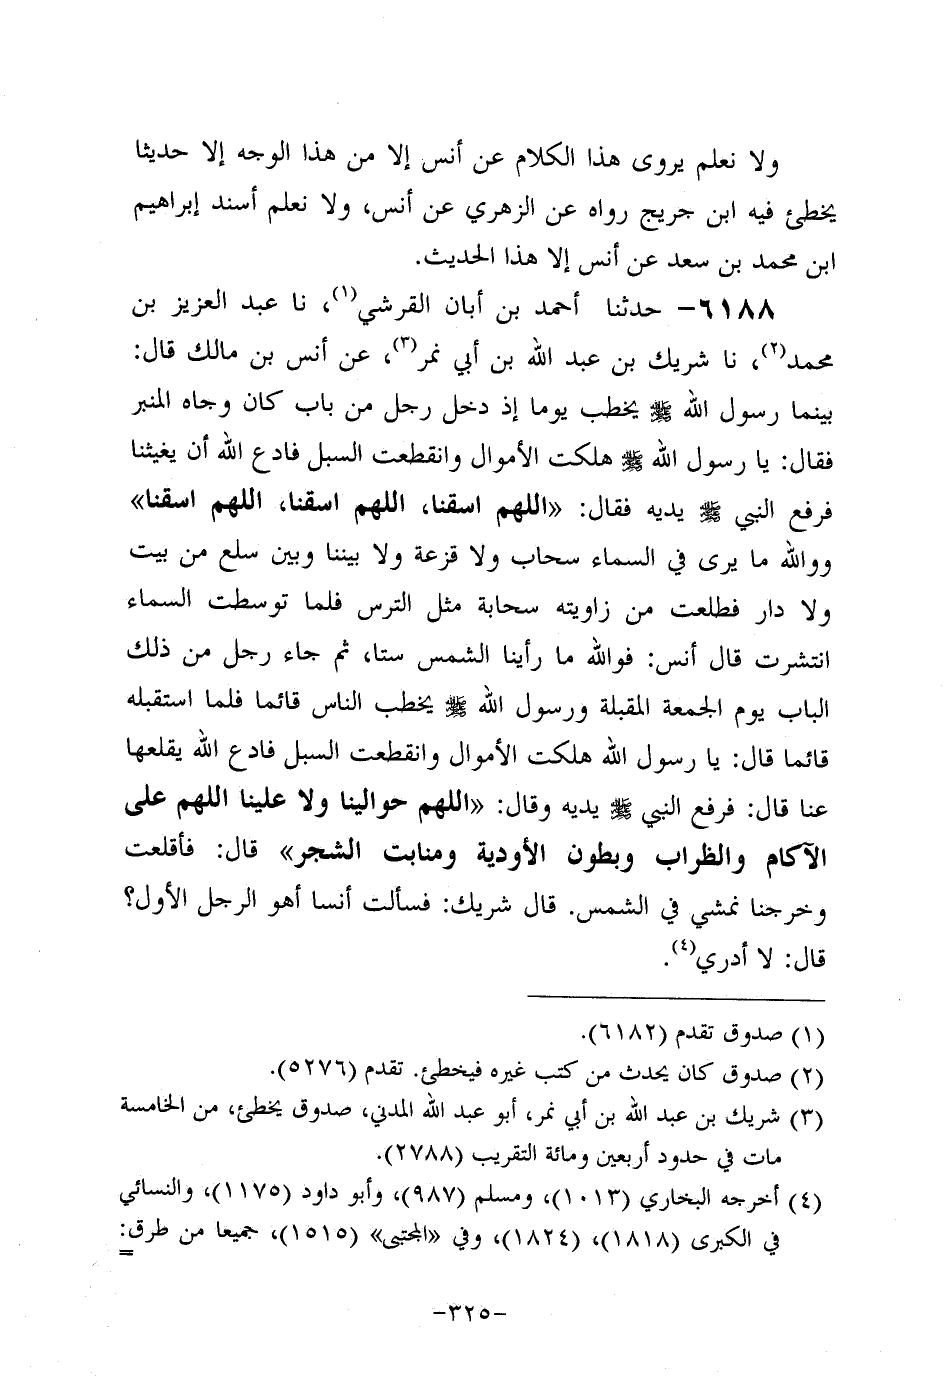 ولا نعلم يروى هذا الكلام عن أنس إلا من هذا الوجه إلا حديثا
يخطئ فيه ابن جريج رواه عن الزهري عن أنس، ولا نعلم أسند إبراهيم
ابن محمد بن سعد عن أنس إلا هذا الحديث.
٦١٨٨- حدثنا أحمد بن أبان القرشي(١)، نا عبد العزيز بن
محمد(٢)، نا شريك بن عبد الله بن أبي نمر(٣)، عن أنس بن مالك قال:
بينما رسول الله ﷺ يخطب يوما إذ دخل رجل من باب كان وجاه المنبر
فقال: يا رسول الله ﷺ هلكت الأموال وانقطعت السبل فادع الله أن يغيثنا
فرفع النبي ﷺ يديه فقال: «اللهم اسقنا، اللهم اسقنا، اللهم اسقنا»
ووالله ما يرى في السماء سحاب ولا قزعة ولا بيننا وبين سلع من بيت
ولا دار فطلعت من زاويته سحابة مثل الترس فلما توسطت السماء
انتشرت قال أنس: فوالله ما رأينا الشمس ستا، ثم جاء رجل من ذلك
الباب يوم الجمعة المقبلة ورسول الله ﷺ يخطب الناس قائما فلما استقبله
قائما قال: يا رسول الله هلكت الأموال وانقطعت السبل فادع الله يقلعها
عنا قال: فرفع النبي ﷺ يديه وقال: «اللهم حوالينا ولا علينا اللهم على
الآكام والظراب وبطون الأودية ومنابت الشجر» قال: فأقلعت
وخرجنا نمشي في الشمس. قال شريك: فسألت أنسا أهو الرجل الأول؟
قال: لا أدري(٤).
(١) صدوق تقدم (٦١٨٢).
(٢) صدوق كان يحدث من كتب غيره فيخطئ. تقدم (٥٢٧٦).
(٣) شريك بن عبد الله بن أبي نمر، أبو عبد الله المدني، صدوق يخطئ، من الخامسة
مات في حدود أربعين ومائة التقريب (٢٧٨٨).
(٤) أخرجه البخاري (١٠١٣)، ومسلم (٩٨٧)، وأبو داود (١١٧٥)، والنسائي
في الكبرى (١٨١٨)، (١٨٢٤)، وفي «المجتبى» (١٥١٥)، جميعا من طرق:
=
-٣٢٥-